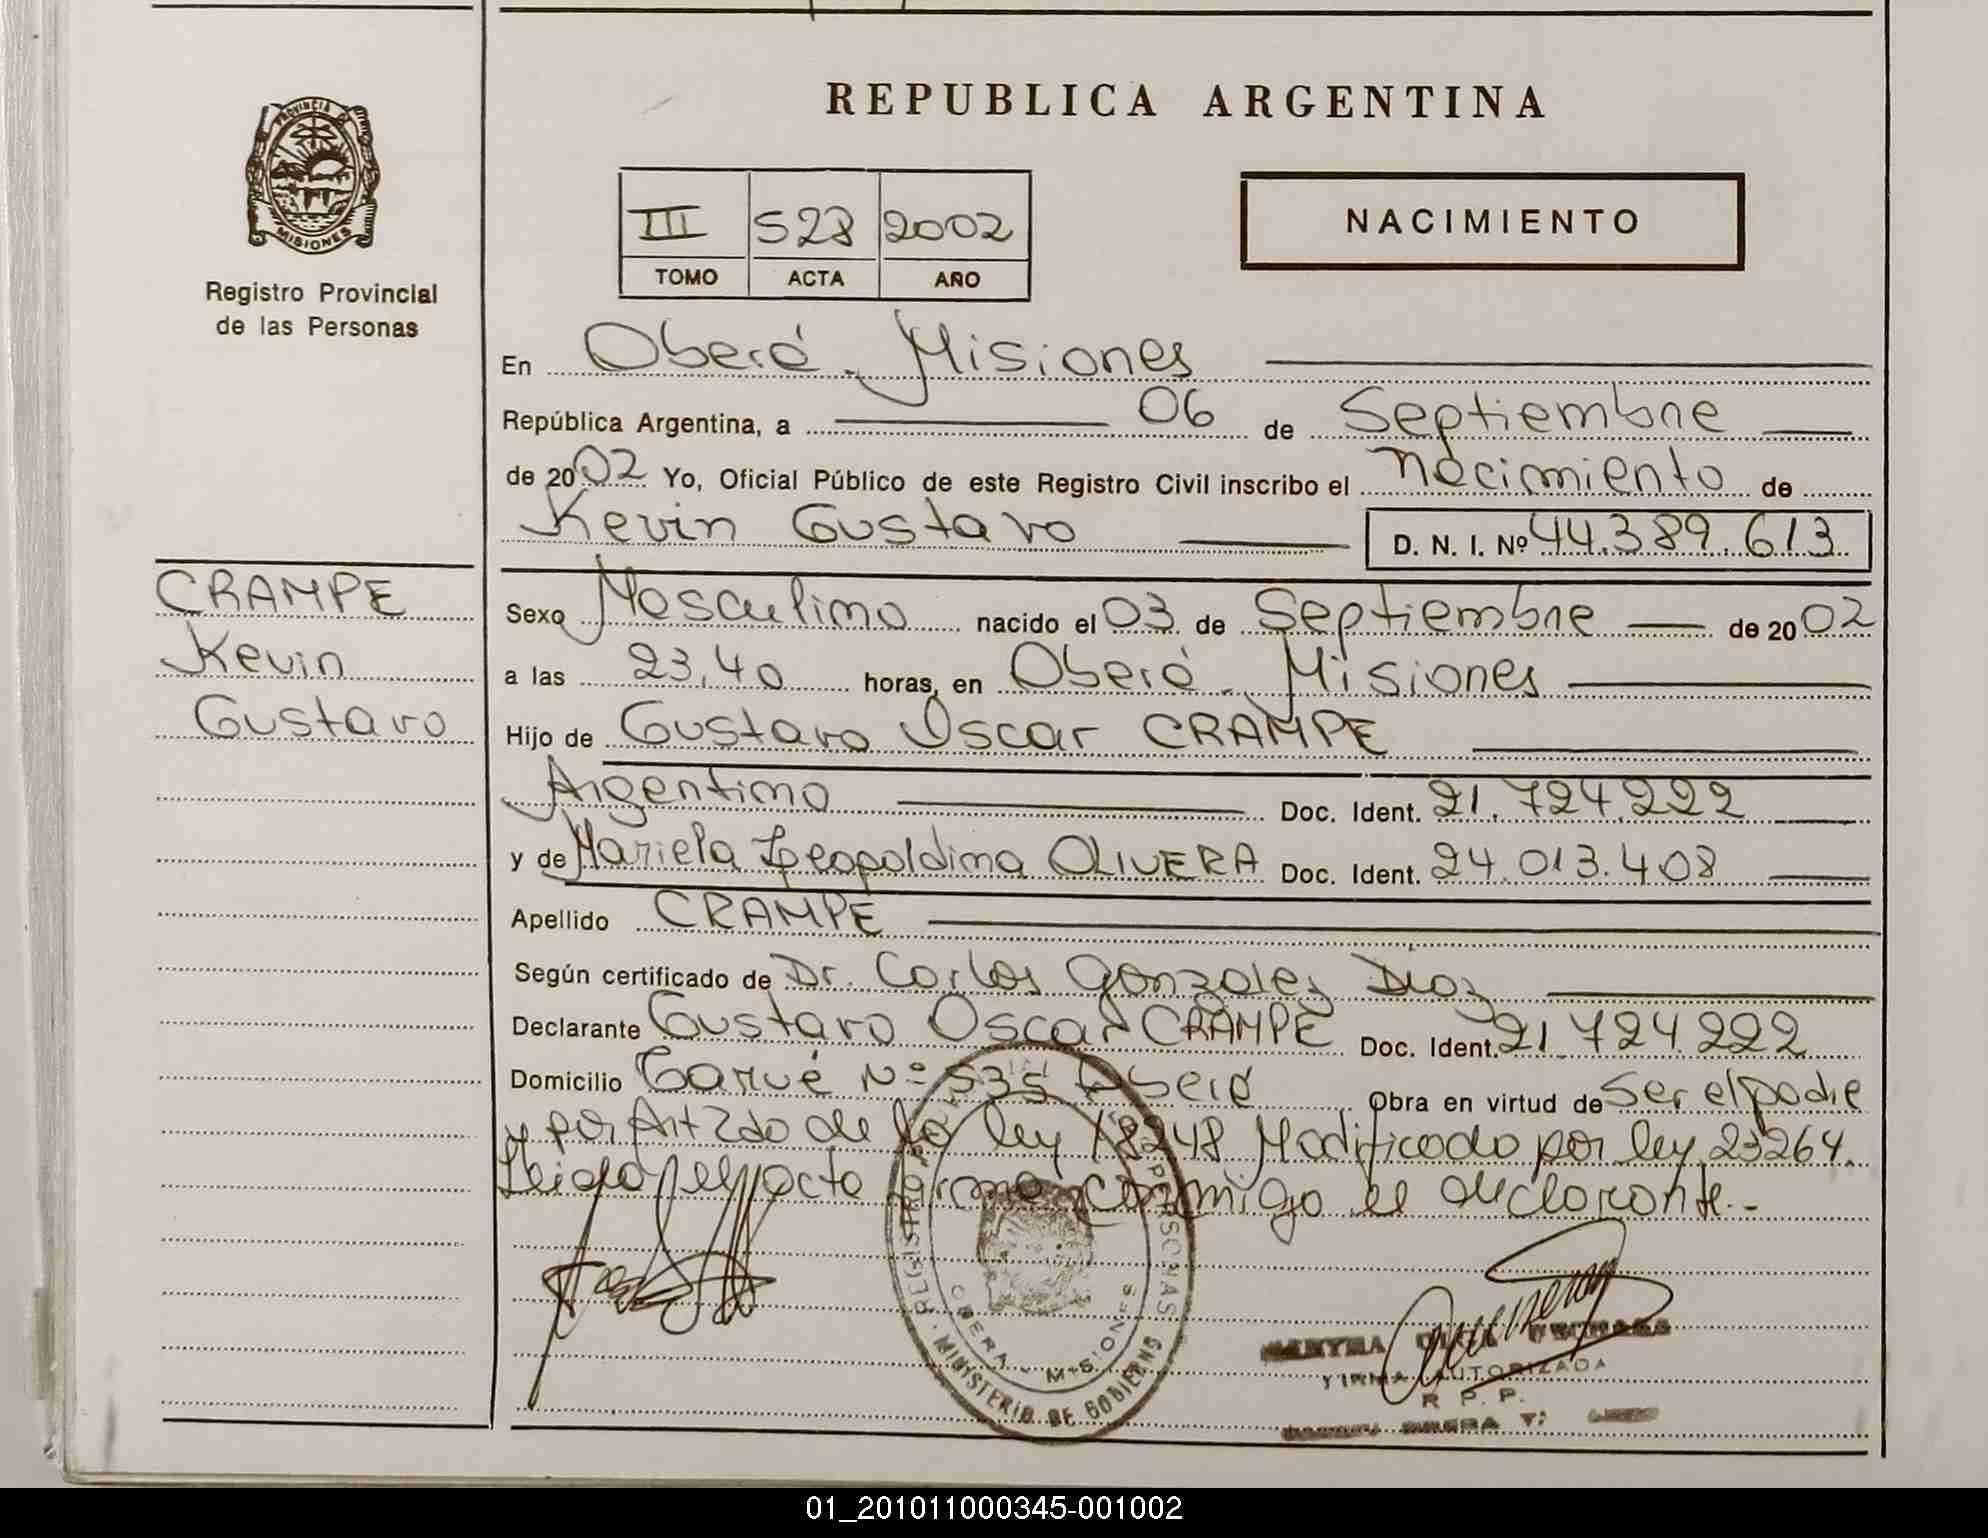 REPUBLICA ARGENTINA
PROVINCIA DE
MISIONES
Registro Provincial
de las Personas
III 528 2002
TOMO ACTA AÑO
NACIMIENTO
En Oberá - Misiones
República Argentina, a 06 de Septiembre
de 2002 Yo, Oficial Público de este Registro Civil inscribo el nacimiento de
Kevin Gustavo D. N. I. Nº 44.389.613
CRAMPE
Kevin
Gustavo
Sexo Masculino nacido el 03 de Septiembre de 2002
a las 23,40 horas, en Oberá - Misiones
Hijo de Gustavo Oscar CRAMPE
Argentino Doc. Ident. 21.724.222
y de Mariela Leopoldina OLIVERA Doc. Ident. 24.013.408
Apellido CRAMPE
Según certificado de Dr. Carlos Gonzalez Diaz
Declarante Gustavo Oscar CRAMPE Doc. Ident. 21.724.222
Domicilio Nº 535 Oberá Obra en virtud de Ser el padre
y por Art 2do de la ley 18248 Modificado por ley 23264.
Leida el acta firma conmigo el declarante.-
OBERA - MISIONES
MINISTERIO DE GOBIERNO
FIRMA AUTORIZADA
R. P. P.
01_201011000345-001002